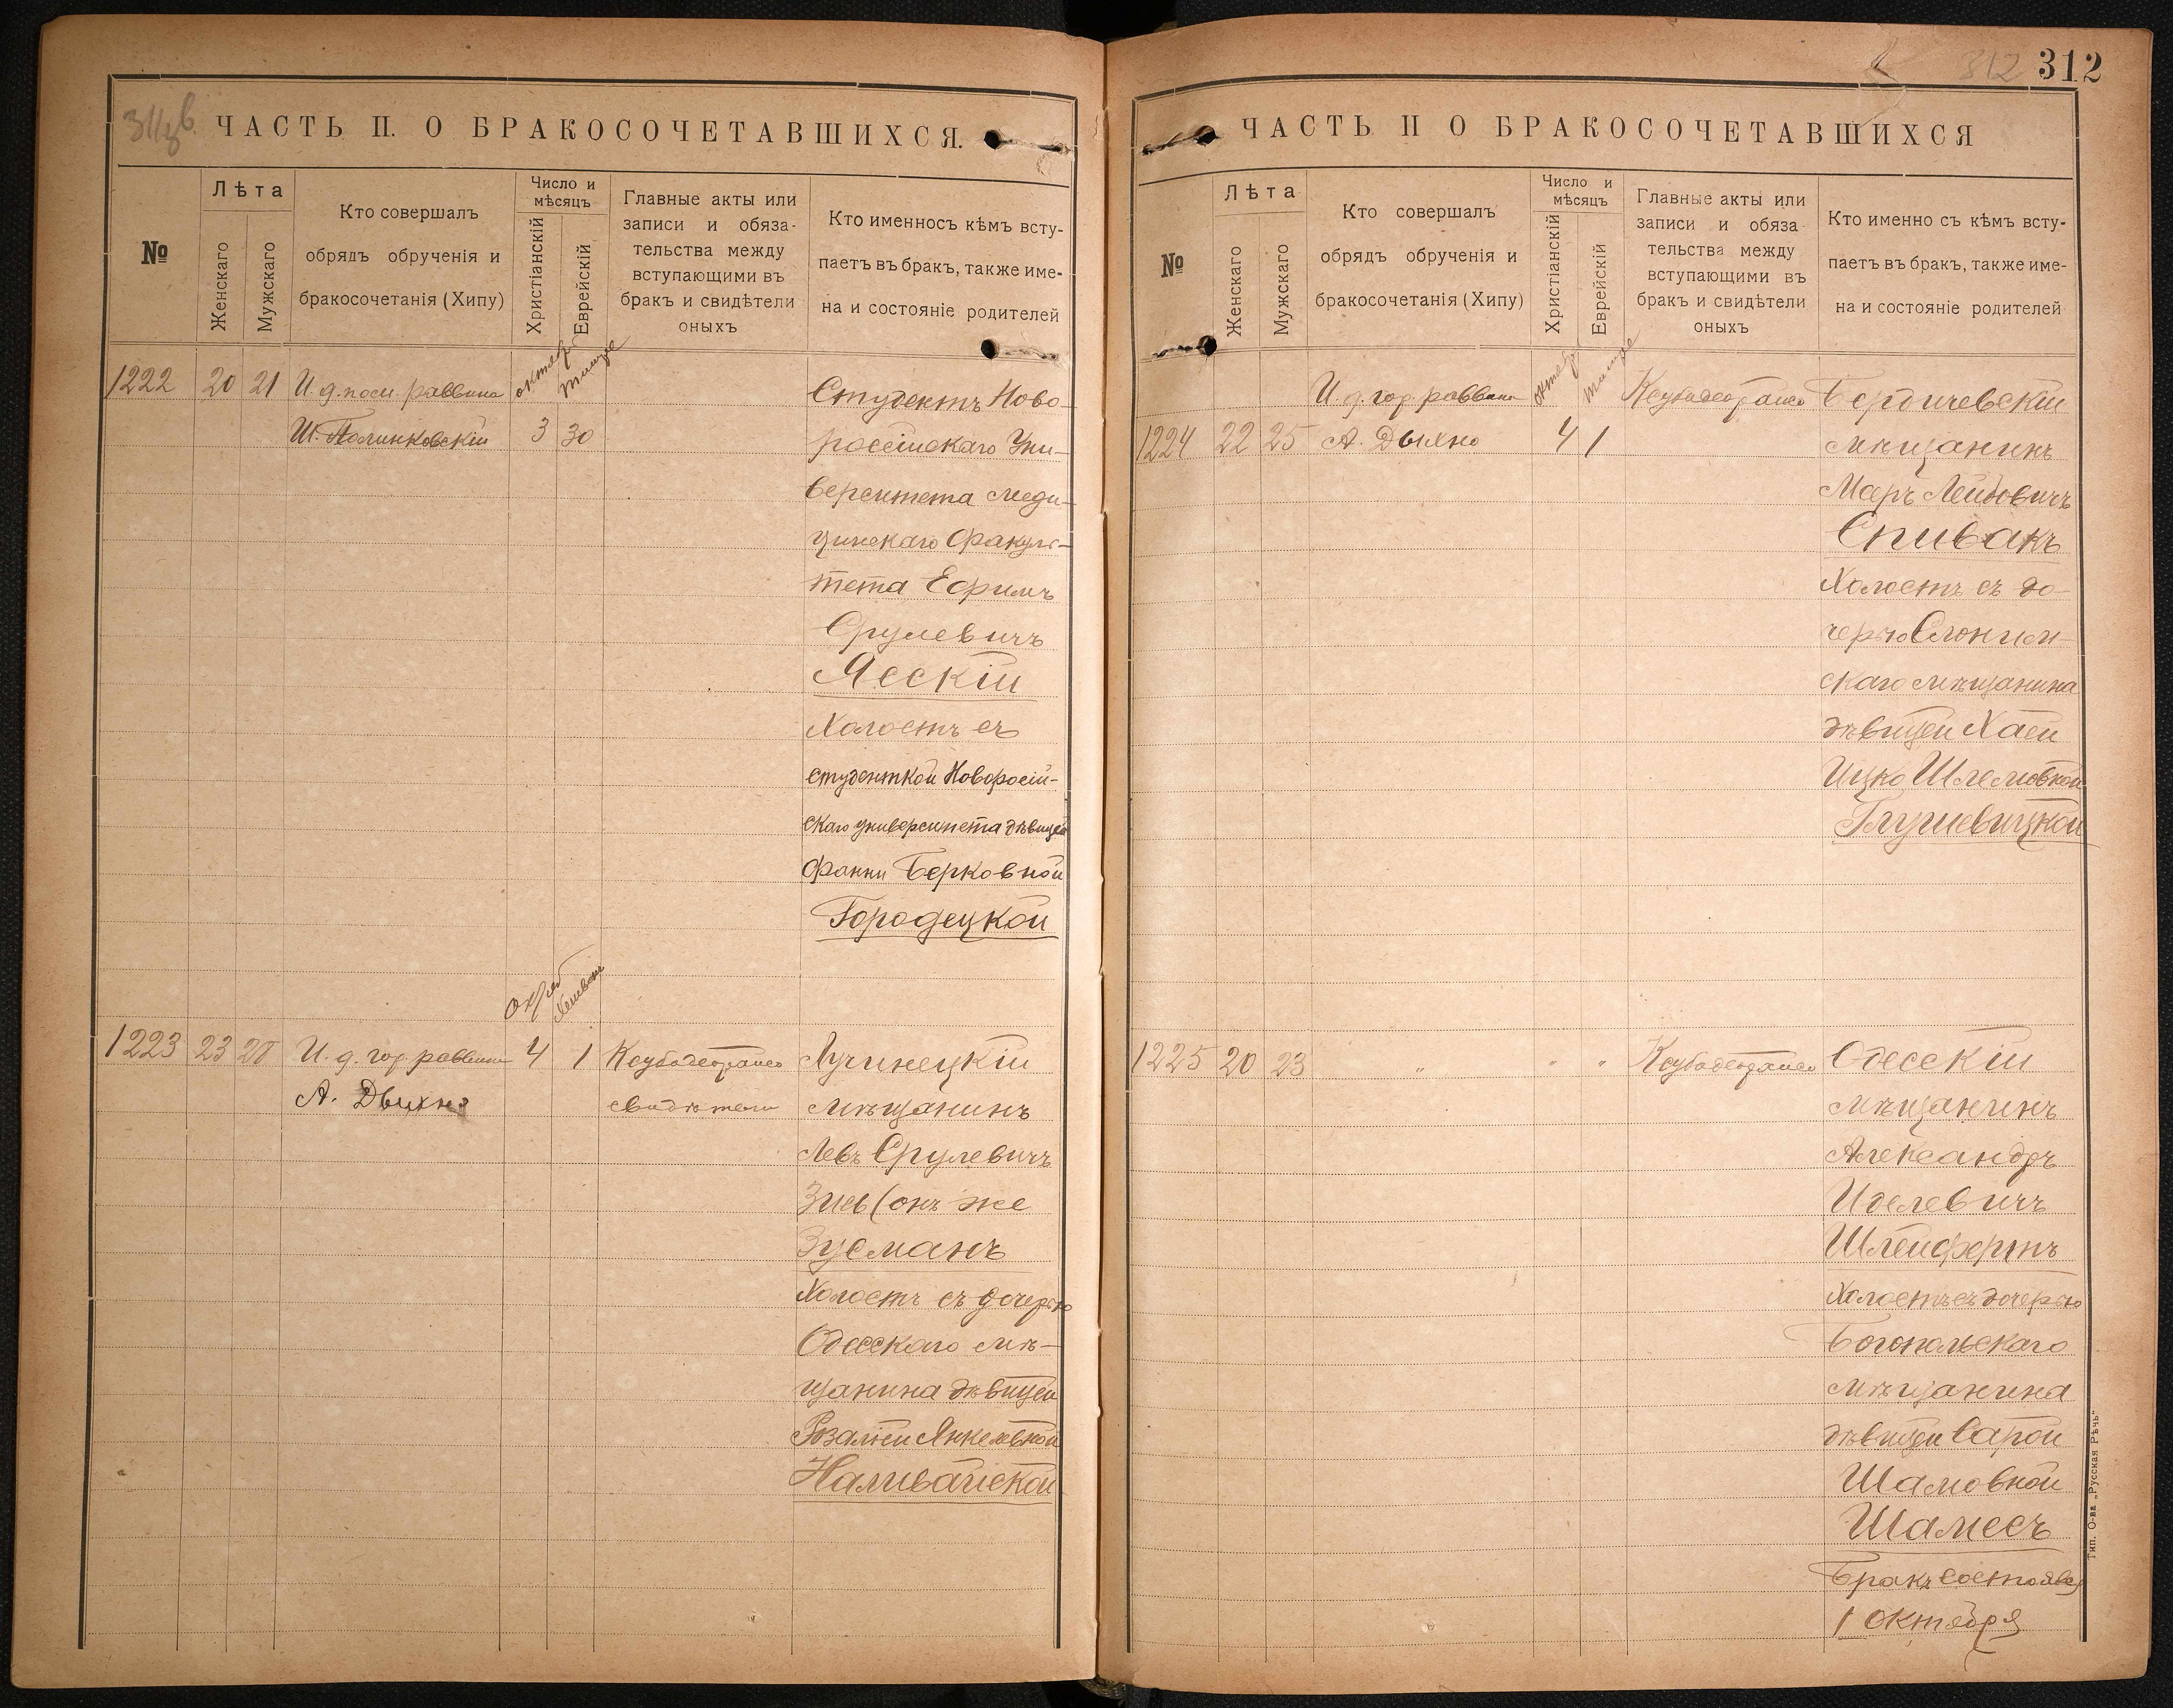 311 об
ЧАСТЬ II. О БРАКОСОЧЕТАВШИХСЯ.
№
Лѣта
Женскаго
Мужскаго
Кто совершалъ
обрядъ обрученія и
бракосочетанія (Хипу)
Число и
мѣсяцъ
Христіанскій
Еврейскій
Главные акты или
записи и обяза-
тельства между
вступающими въ
бракъ и свидѣтели
оныхъ
Кто именносъ кѣмъ всту-
паетъ въ бракъ, также име-
на и состояніе родителей
октяб. тишре
1222 20 21 И. д. пом. раввина
Ш. Полинковскій 3 30
Студентъ Ново-
россійскаго Уни-
верситета меди-
цинскаго Факуль-
тета Ефримъ
Срулевичъ
Ясскій
Холостъ съ
студенткой Новоросій-
скаго университета дѣвицей
Фанни Берковной
Городецкой
Октяб Хешвон
1223 23 28 И. д. гор. раввина 4 1
А. Дыхно
свидѣтели
Лучинецкій
мѣщанинъ
Левъ Срулевичъ
Зись (онъ же
Зусманъ
Холостъ съ дочерью
Одесскаго мѣ-
щанина дѣвицей
Розаліей Янкелевной
Наливайской
312
312
ЧАСТЬ II О БРАКОСОЧЕТАВШИХСЯ
№
Лѣта
Женскаго
Мужскаго
Кто совершалъ
обрядъ обрученія и
бракосочетанія (Хипу)
Число и
мѣсяцъ
Христіанскій
Еврейскій
Главные акты или
записи и обяза-
тельства между
вступающими въ
бракъ и свидѣтели
оныхъ
Кто именно съ кѣмъ всту-
паетъ въ бракъ, также име-
на и состояніе родителей
октябр тишре
И. д. гор. раввина
1224 22 25 А. Дыхно 4 1
Бердичевскій
мѣщанинъ
Меръ Лейбовичъ
Спивакъ
Холостъ съ до-
черью Слоним-
скаго мѣщанина
дѣвицей Хаей
Ицко Шлемовной
Глушевицкой
1225 20 23 " " "
Одесскій
мѣщанинъ
Александръ
Иделевичъ
Шлейфертъ
Холостъ съ дочерью
Богопольскаго
мѣщанина
дѣвицей Сарой
Шамовной
Шамесъ
Бракъ состоялся
1 октября
Тип. О-ва „Русская Рѣчь"